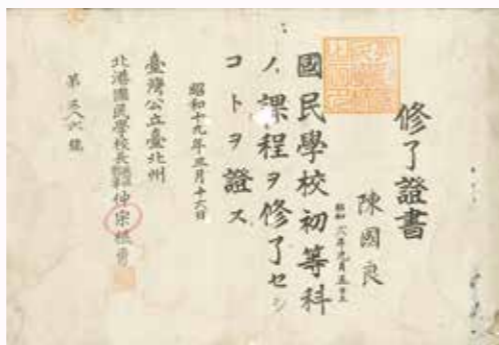 修了證書
陳國良
昭和六年九月五日生
國民學校初等科
ノ課程ヲ修了セシ
コトヲ證ス
昭和十九年三月十六日
臺灣公立臺北州
北港國民學校長 仲宗根
第 號